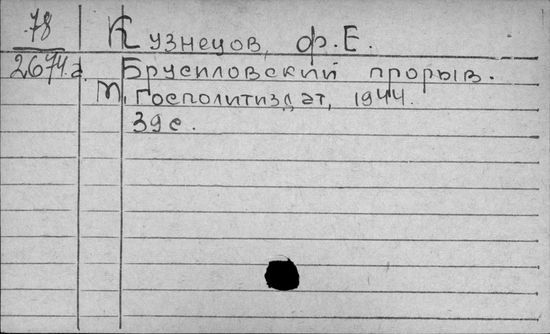 78
2674.а.
Кузнецов, Ф.Е.
Брусиловский прорыв.
М, Госполитиздат, 1944.
39 с.